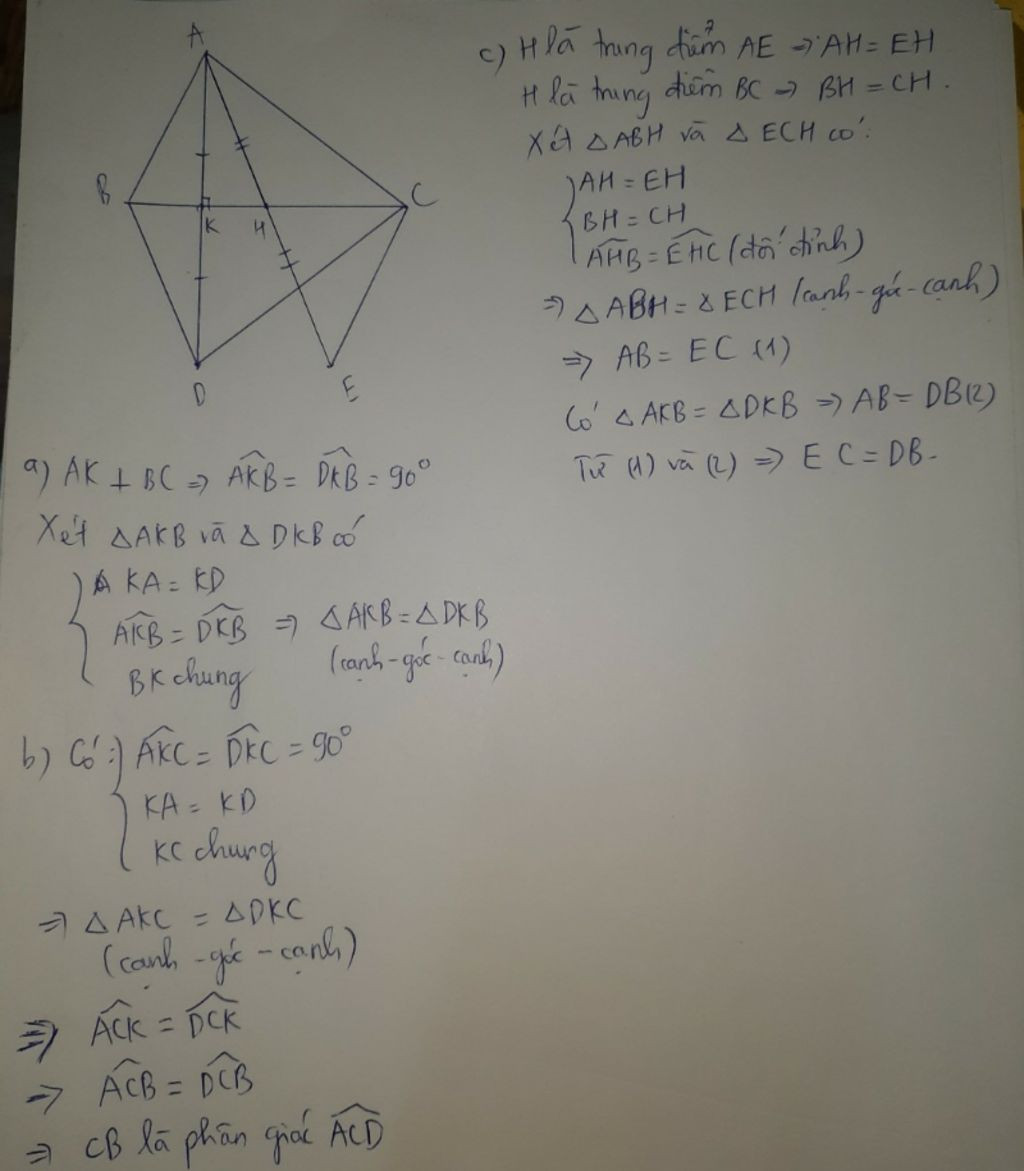 A
B
K
H
C
D
E
a) AK ⊥ BC => \widehat{AKB} = \widehat{DKB} = 90°
Xét △AKB và △DKB có
{ KA = KD
\widehat{AKB} = \widehat{DKB} => △AKB = △DKB
BK chung (cạnh-góc-cạnh)
b) Có: { \widehat{AKC} = \widehat{DKC} = 90°
KA = KD
KC chung
=> △AKC = △DKC
(cạnh-góc-cạnh)
=> \widehat{ACK} = \widehat{DCK}
=> \widehat{ACB} = \widehat{DCB}
=> CB là phân giác \widehat{ACD}
c) H là trung điểm AE => AH = EH
H là trung điểm BC => BH = CH.
Xét △ABH và △ECH có:
{ AH = EH
BH = CH
\widehat{AHB} = \widehat{EHC} (đối đỉnh)
=> △ABH = △ECH (cạnh-góc-cạnh)
=> AB = EC (1)
Có △AKB = △DKB => AB = DB(2)
Từ (1) và (2) => EC = DB.